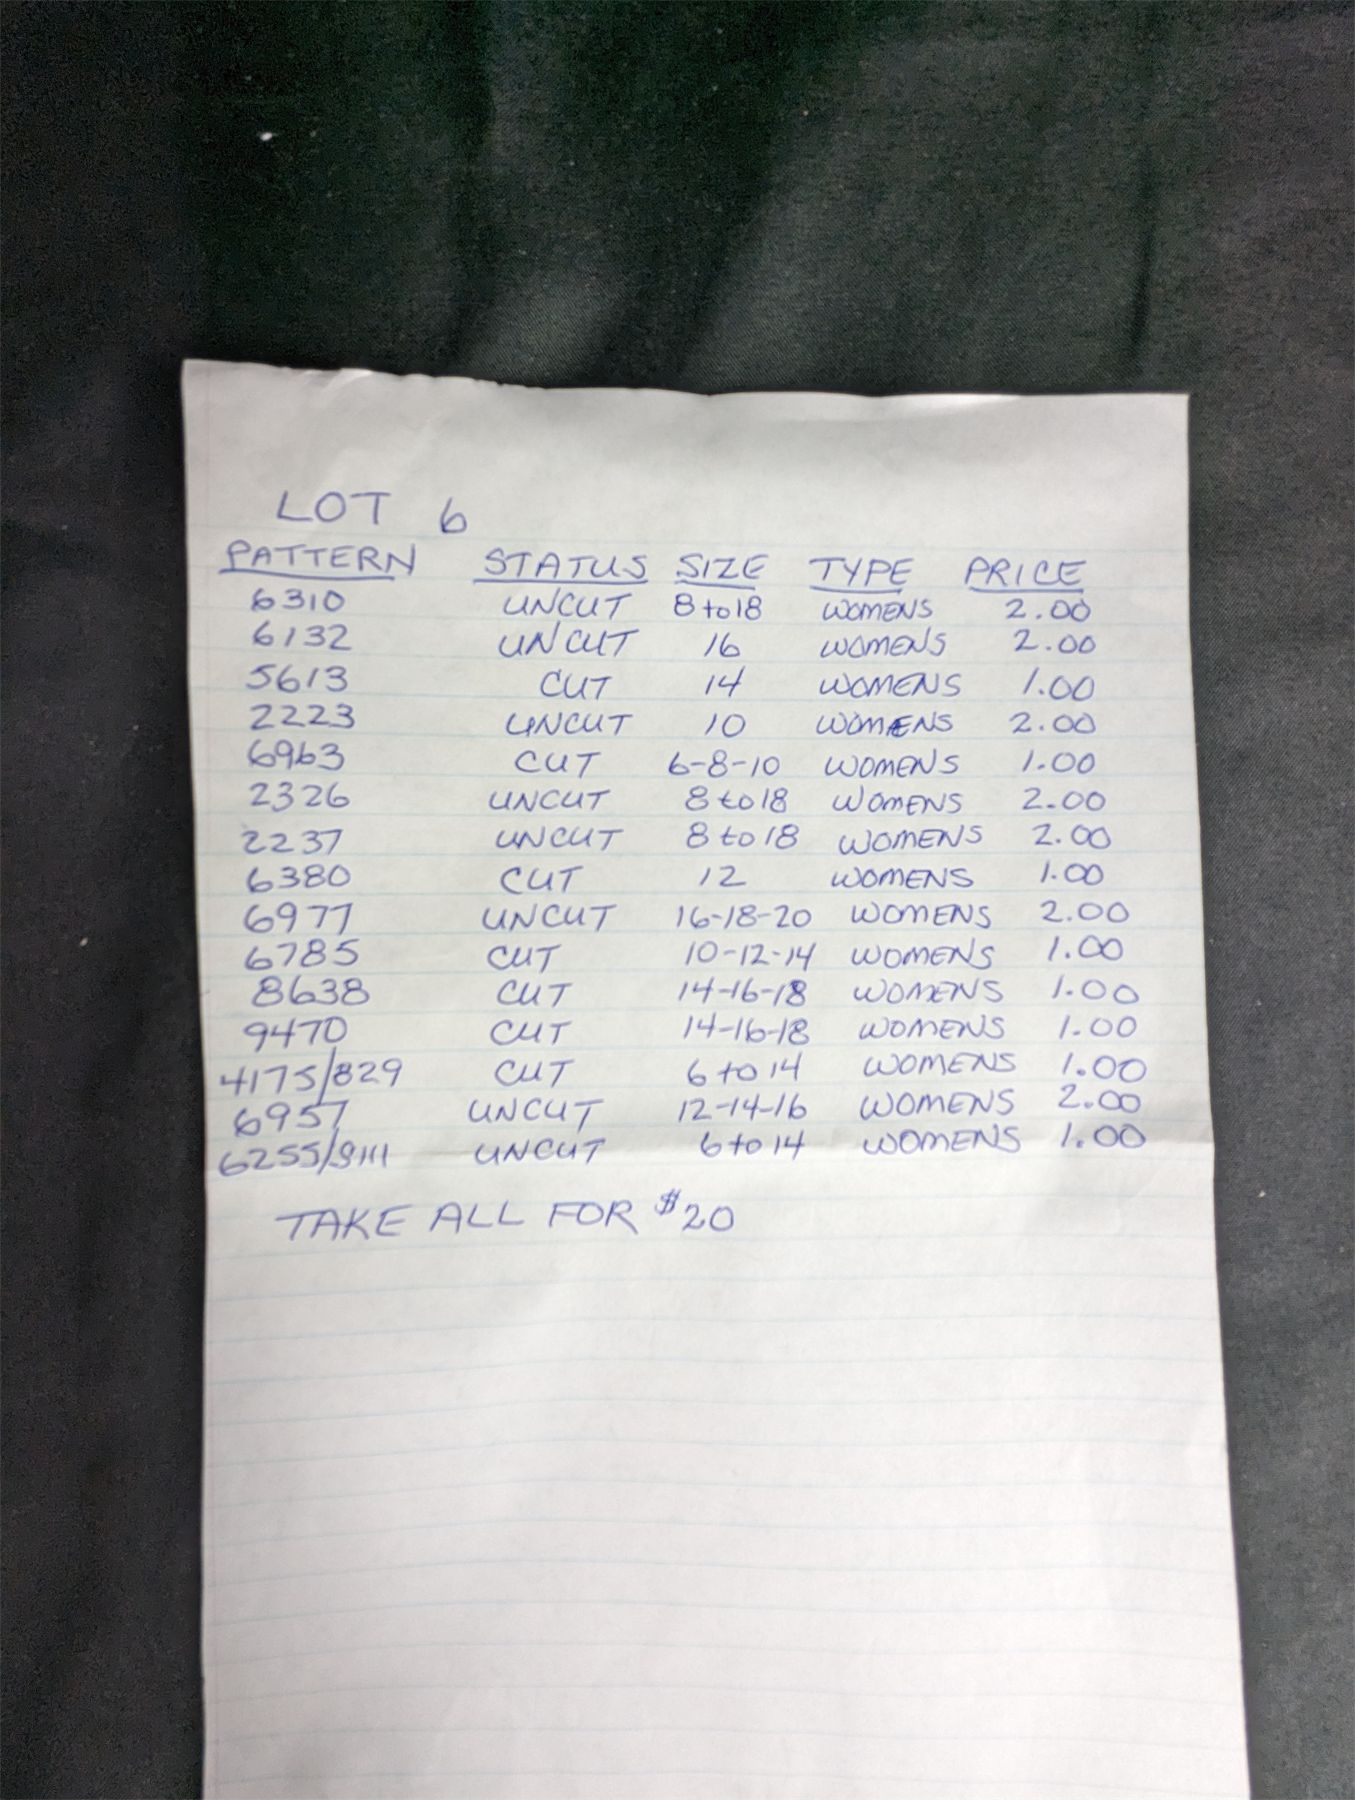 LOT 6
PATTERN STATUS SIZE TYPE PRICE
6310 UNCUT 8 to 18 WOMENS 2.00
6132 UNCUT 16 WOMENS 2.00
5613 CUT 14 WOMENS 1.00
2223 UNCUT 10 WOMENS 2.00
6963 CUT 6-8-10 WOMENS 1.00
2326 UNCUT 8 to 18 WOMENS 2.00
2237 UNCUT 8 to 18 WOMENS 2.00
6380 CUT 12 WOMENS 1.00
6977 UNCUT 16-18-20 WOMENS 2.00
6785 CUT 10-12-14 WOMENS 1.00
8638 CUT 14-16-18 WOMENS 1.00
9470 CUT 14-16-18 WOMENS 1.00
4175/829 CUT 6 to 14 WOMENS 1.00
6957 UNCUT 12-14-16 WOMENS 2.00
6255/9111 UNCUT 6 to 14 WOMENS 1.00
TAKE ALL FOR $20